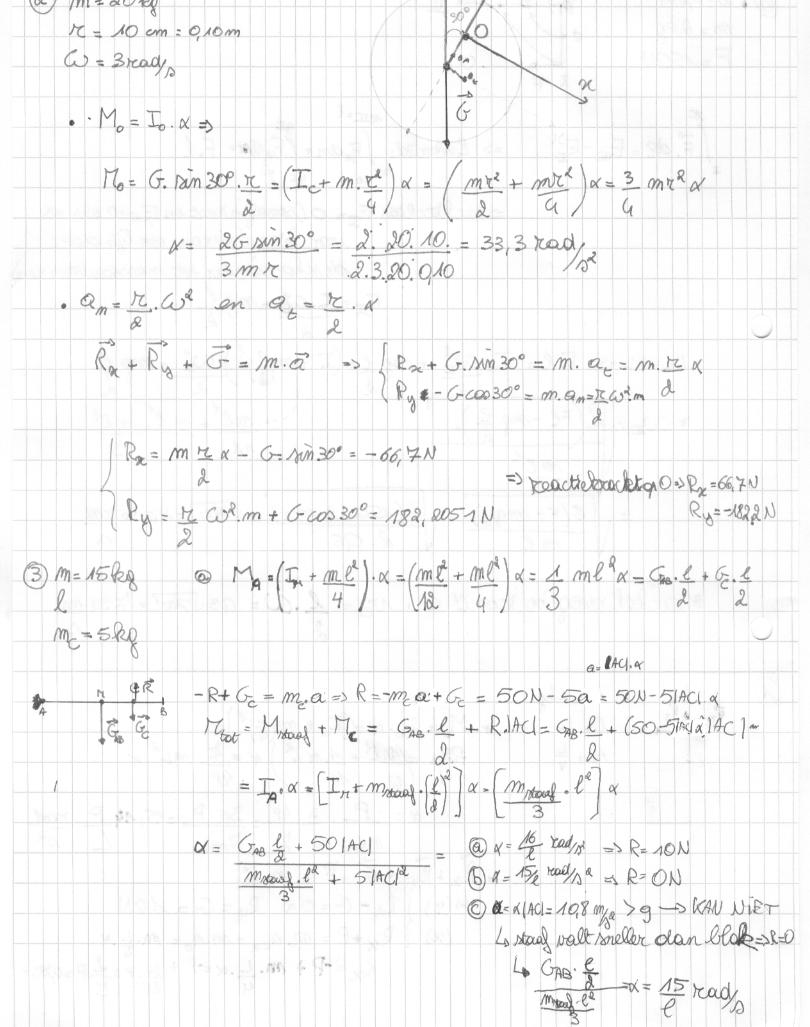 ② m = 20 kg
r = 10 cm = 0,10 m
ω = 3 rad/s
30°
O
x
G⃗
• M₀ = I₀ . α ⇒
M₀ = G. sin30° . r/2 = (I_c + m. r²/4) α = (mr²/2 + mr²/4) α = 3/4 mr² α
α = 2G sin30° / 3mr = 2. 20. 10. / 2.3.20.0,10 = 33,3 rad/s²
• a_n = r/2 . ω² en a_t = r/2 . α
R⃗_x + R⃗_y + G⃗ = m.a⃗ ⇒ { R_x + G.sin30° = m. a_t = m. r/2 α
R_y - Gcos30° = m.a_n = r/2 ω².m
{ R_x = m r/2 α - G sin30° = -66,7N
R_y = r/2 ω².m + G cos30° = 182,2051 N
⇒ reactiekracht op O ⇒ R_x = 66,7N
R_y = -182,2 N
③ m = 15kg
l
m_c = 5kg
ⓐ M_A = (I_M + ml²/4) . α = (ml²/12 + ml²/4) α = 1/3 ml² α = G_AB . l/2 + G_C . l/2
a = |AC|. α
A M B R⃗ G⃗_AB G⃗_C
-R + G_c = m_c.a ⇒ R = -m_c a + G_c = 50N - 5a = 50N - 5|AC| α
M_tot = M_staaf + M_c = G_AB . l/2 + R.|AC| = G_AB . l/2 + (50 - 5|AC| α)|AC|
= I_A . α = [I_M + m_staaf . (l/2)²] α = [m_staaf/3 . l²] α
α = G_AB l/2 + 50|AC| / m_staaf . l²/3 + 5|AC|² =
ⓐ α = 16/l rad/s² ⇒ R = 10N
ⓑ α = 15/l rad/s² ⇒ R = 0N
ⓒ a = α|AC| = 10,8 m/s² > g → KAN NIET
↳ staaf valt sneller dan blok ⇒ R=0
↳ G_AB . l/2 / m_staaf . l²/3 = α = 15/l rad/s